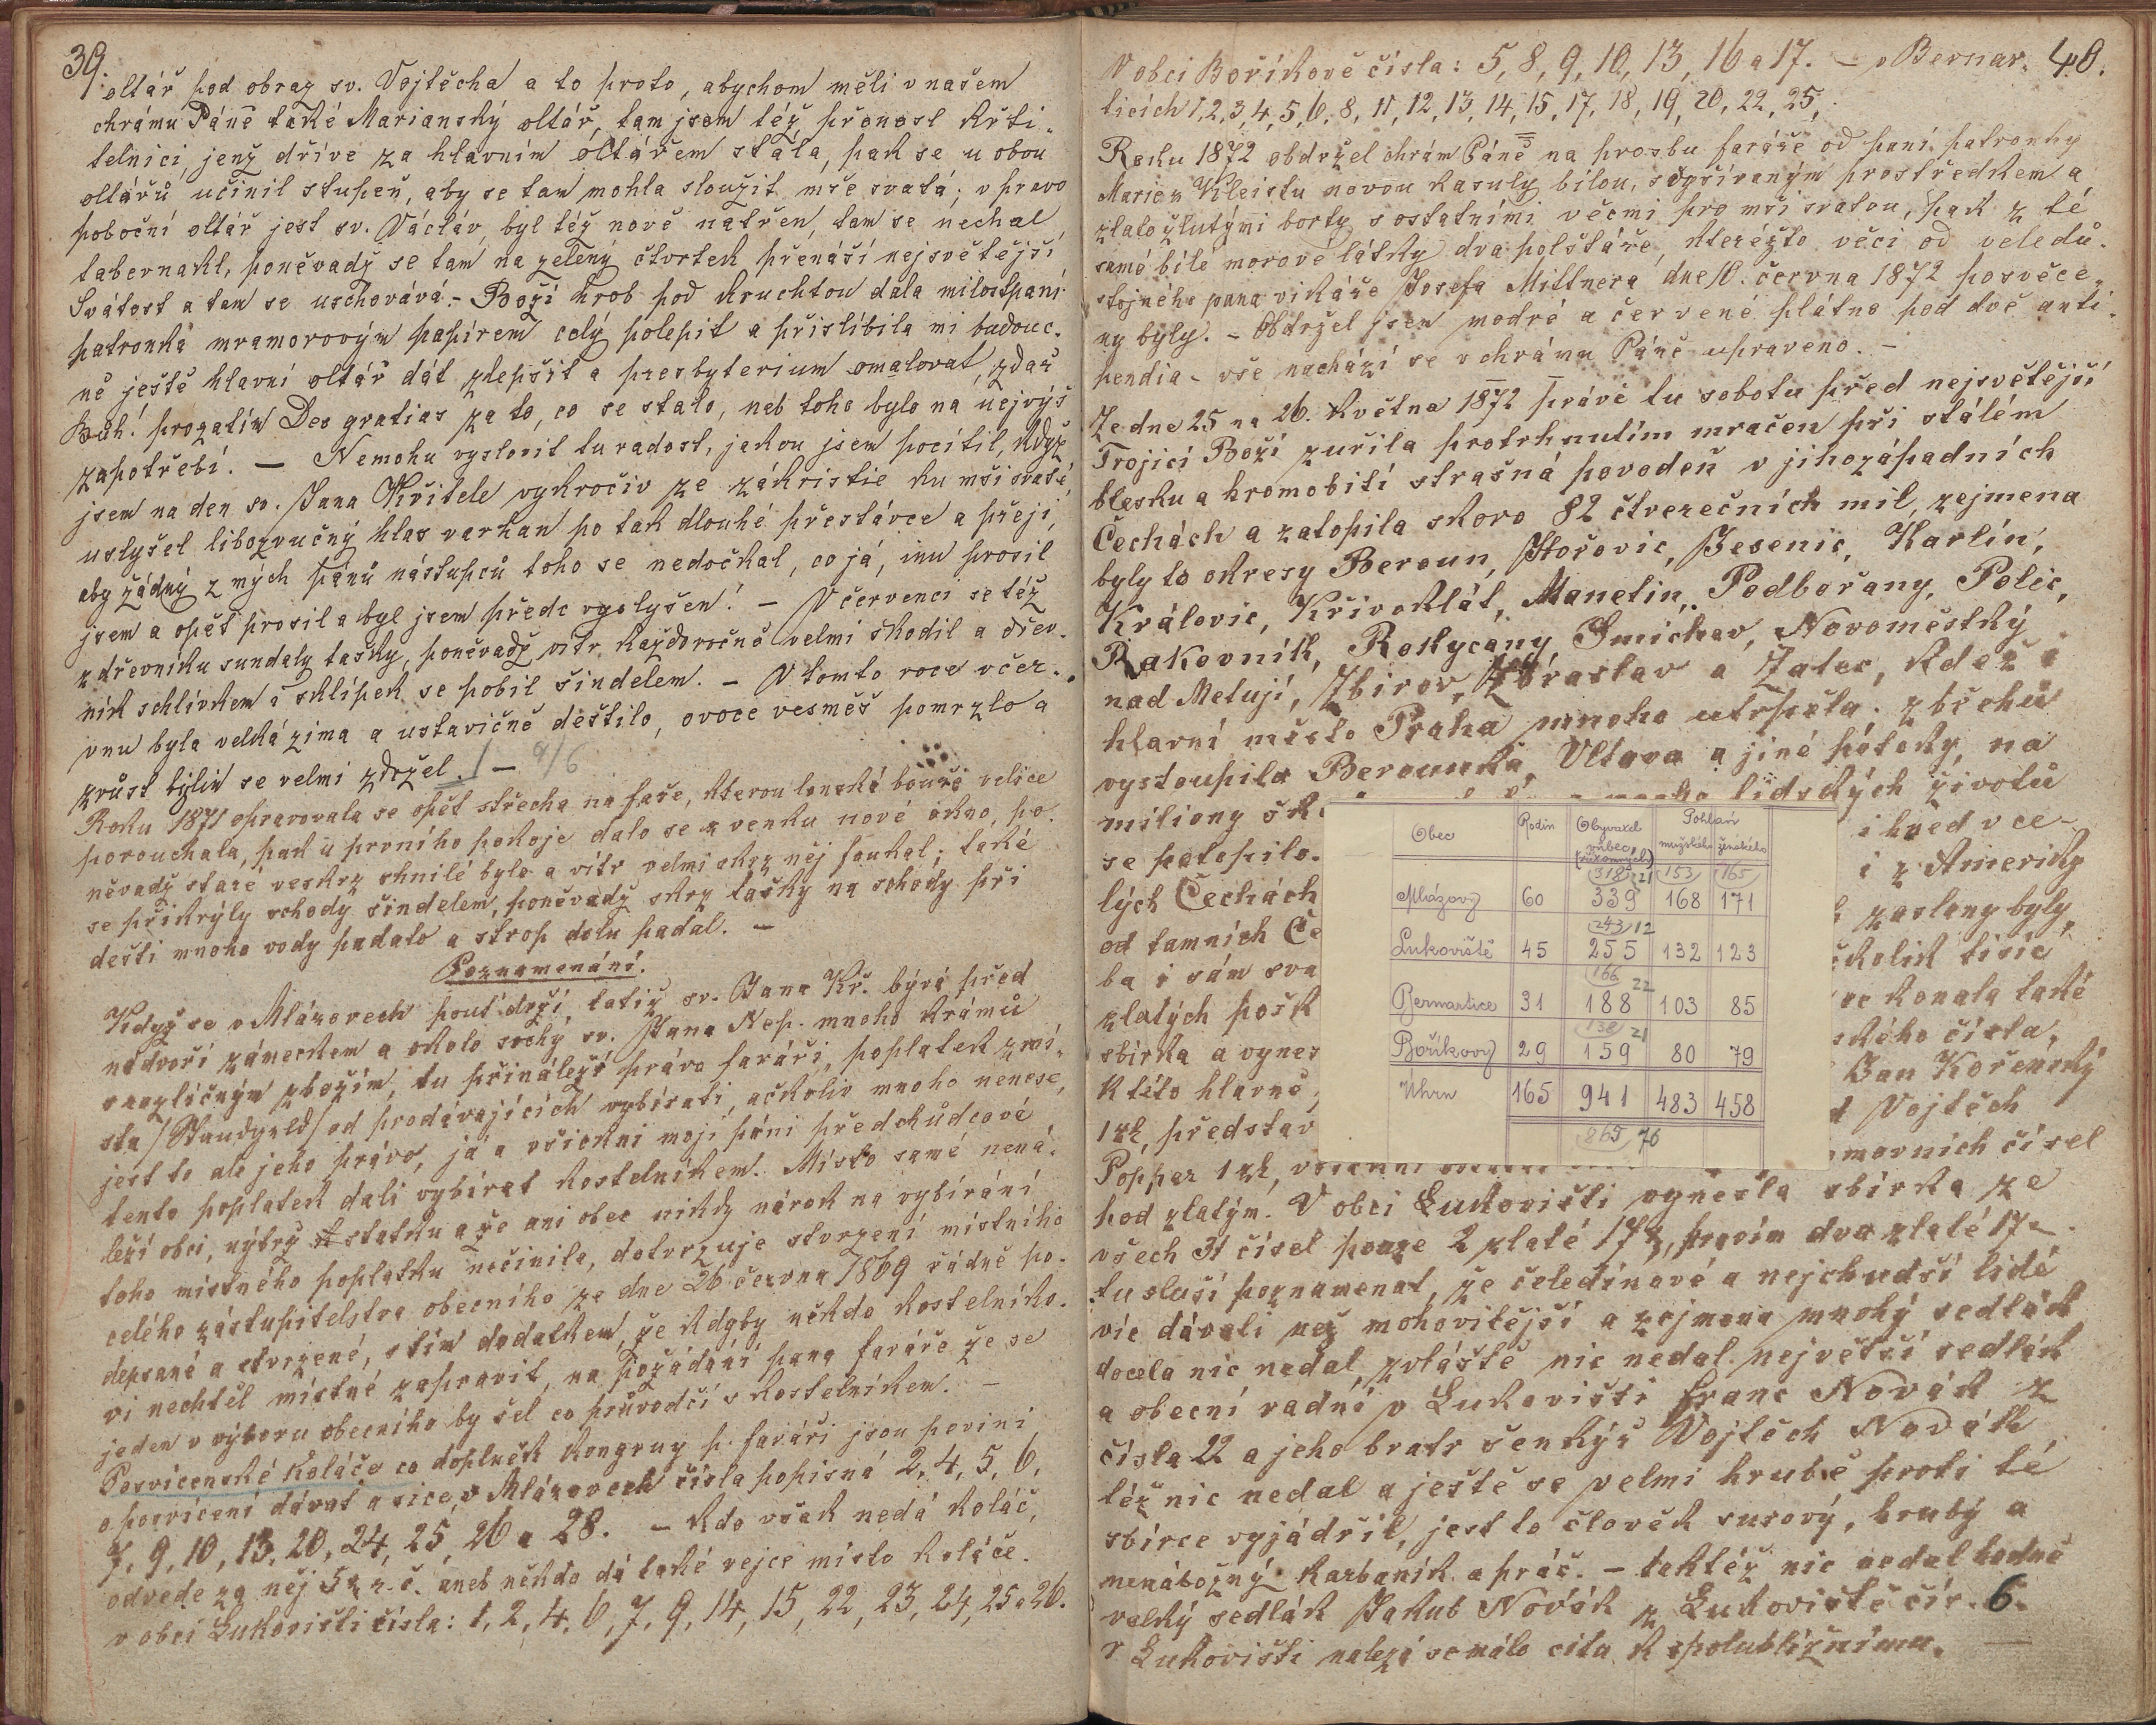 39.
oltář pod obraz sv. Vojtěcha a to proto, abychom měli v našem
chrámu Páně také Marianský oltář, tam jsem též přenesl křti-
telnici, jenž dříve za hlavním oltářem stála, pak se u obou
oltářů učinil stupeň, aby se tam mohla sloužit mše svatá; v pravo
poboční oltář jest sv. Václáv, byl též nově natřen, tam se nechal
tabernakl, poněvadž se tam na zelený čtvrtek přenáší nejsvětější
Svátost a tam se uschovává. – Boží hrob pod kruchtou dala milostpaní
patronka mramorovým papírem celý polepit a přislíbila mi budouc-
ně ještě hlavní oltář dát zlepšit a presbyterium omalovat, zdař
Bůh! prozatím Deo gratias za to, co se stalo, neb toho bylo na nejvýš
zapotřebí. – Nemohu vyslovit tu radost, jakou jsem pocítil, když
jsem na den sv. Jana Křtitele vykročiv ze zákristie ku mši svaté
uslyšel libozvučný hlas varhan po tak dlouhé přestávce a přeji,
aby žádný z mých pánů nástupců toho se nedočkal, co já, inu prosil
jsem a opět prosil a byl jsem předc vyslyšen! – V červenci se též
z dřevníku sundaly tašky, poněvadž vítr každoročně velmi škodil a dřev-
ník schlívkem i sklípek se pobil šindelem. – V tomto roce v čer-
vnu byla velká zima a ustavičně deštilo, ovoce vesměs pomrzlo a
zrůst bylin se velmi zdržel. –
Roku 1871 opravovala se opět střecha na faře, kterou lonská bouře velice
porouchala, pak u prvního pokoje dalo se z venku nové okno, po-
něvadž staré veskrz shnilé bylo a vítr velmi skrz něj foukal; také
se přikrýly schody šindelem, poněvadž skrz tašky na schody při
dešti mnoho vody padalo a strop dolu padal. –
Poznamenání.
Když se v Mlázovech pouť drží, totiž sv. Jana Kř. bývá před
nádvoří zámeckem a okolo sochy sv. Jana Nep. mnoho krámů
s rozličným zbožím, tu přináleží právo faráři, poplatek z mí-
sta /Standgeld/ od prodávajících vybírati, ačkoliv mnoho nenese,
jest to ale jeho právo, já a všickni moji páni předchůdcové
tento poplatek dali vybírat kostelníkem. Místo samé nená-
leží obci, nýbrž statku a že ani obec nikdy nárok na vybírání
toho místného poplatku nečinila, dotvrzuje stvrzení místního
celého zástupitelstva obecního ze dne 26 června 1869 řádně po-
depsané a stvrzené, s tím dodatkem, že kdyby někdo kostelníko-
vi nechtěl místné zapravit, na požádání pana faráře že se
jeden v výboru obecního by šel co průvodčí s kostelníkem. –
Posvícenské koláče co doplněk kongruy p. faráři jsou povini
o posvícení dávat a sice v Mlázovech čísla popisná 2, 4, 5, 6,
7, 9, 10, 13, 20, 24, 25, 26 a 28. – Kdo však nedá koláč,
odvede za něj 5 kr. r. č. aneb někdo dá také vejce místo koláče.
v obci Lukovišti čísla: 1, 2, 4, 6, 7, 9, 14, 15, 22, 23, 24, 25 a 26.
40.
V obci Boříkově čísla: 5, 8, 9, 10, 13, 16 a 17. – v Bernar-
ticích 1, 2, 3, 4, 5, 6, 8, 11, 12, 13, 14, 15, 17, 18, 19, 20, 22, 25,
Roku 1872 obdržel chrám Páně na prosbu faráře od paní patronky
Marie z Kleistu novou kasuly bílou, s vyšívaným prostředkem a
zlatožlutými borty s ostatními věcmi pro mši svatou, pak z té
samé bílé morové látky dva polštáře, kterézto věci od veledů-
stojného pana vikáře Josefa Mittnera dne 10. června 1872 posvěce-
ny byly. – Obdržel jsem modré a červené plátno pod dvě anti-
pendia – vše nachází se v chrámu Páně upraveno. –
Ze dne 25 na 26. Května 1872 právě tu sobotu před nejsvětější
Trojicí Boží zuřila protrhnutím mračen při stálém
blesku a hromobití strašná povodeň v jihozápadních
Čechách a zatopila skoro 82 čtverečních mil, zejmena
byly to okresy Beroun, Hořovic, Jesenic, Karlín,
Královic, Křivoklát, Manetin, Podbořany, Polic,
Rakovník, Rokycany, Smichov, Novoměstký
nad Metují, Zbirov, Zbraslav a Žatec, kdež i
hlavní město Praha mnoho utrpěla; z břehů
vystoupila Berounka, Vltava a jiné potoky, na
miliony šk lidských životů
se potopilo. i hned v ce-
lých Čechách i z Ameriky
od tamních Če zaslany byly
ba i sám sva ěkolik tisíc
zlatých pošk konala také
sbírka a vynes ského čísla,
k této hlavně Jan Kořenský
1 zl, představ Vojtěch
Popper 1 zl, movních čísel
pod zlatým. V obci Lukovišti vynesla sbírka ze
všech 31 čísel pouze 2 zlaté 17 k, pravím dva zlaté 17 –
tu sluší poznamenat, že čeledínové a nejchudší lidé
víc dávali než mohovitější a zejmena mnohý sedlák
docela nic nedal, zvláště nic nedal největší sedlák
a obecní radní v Lukovišti Franc Novák z
čísla 22 a jeho bratr šenkýř Vojtěch Novák
též nic nedal a ještě se velmi hrubě proti té
sbírce vyjádřil, jest to člověk surový, hrubý a
nenábožný karbaník a práč. – taktéž nic nedal hodně
velký sedlák Jakub Novák z Lukoviště čís. 6.
v Lukovišti nalezá se málo citu k spolubližnímu. –
Obec Rodin Obyvatel vůbec Pohlaví
mužského ženského
318 21 153 165
Mlázovy 60 339 168 171
243 12
Lukoviště 45 255 132 123
166 22
Bernartice 31 188 103 85
138 21
Boříkovy 29 159 80 79
Úhrn 165 941 483 458
865 76